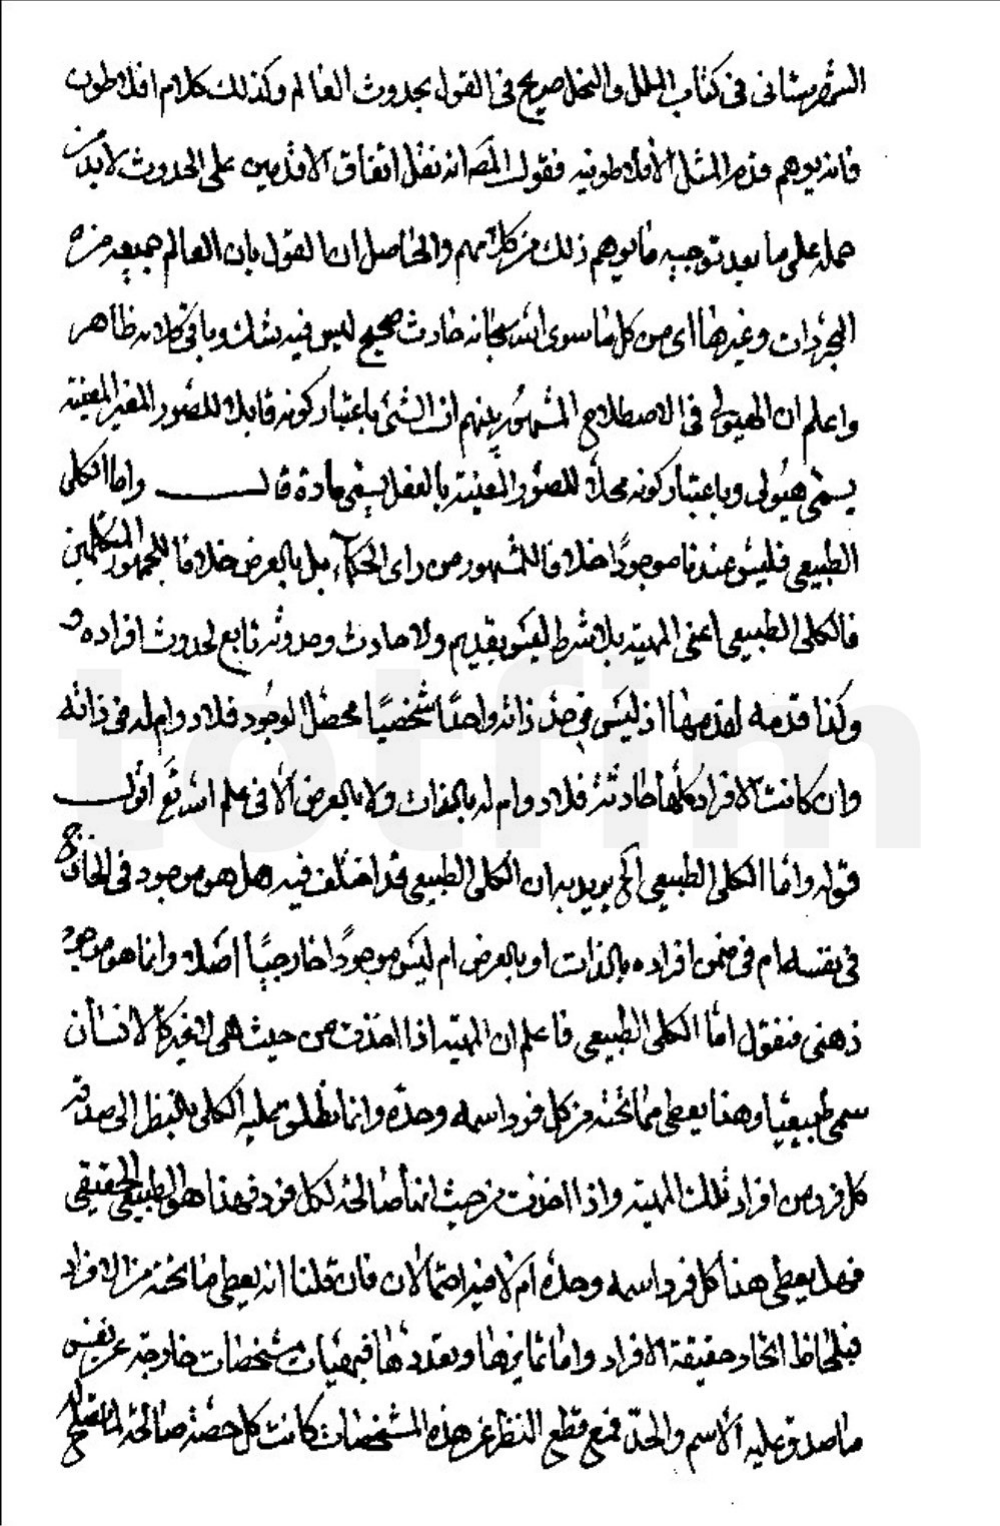 الشهرستانى فى كتاب الملل والنحل صريح فى القول بحدوث العالم وكذلك كلام افلاطون
فانه يوهم قدم المثل الأفلاطونيه فقول المص انه نقل اتفاق الاقدمين على الحدوث لابد من
حمله على ما بعد توجيه ما يوهم ذلك من كلامهم والحاصل ان القول بان العالم جميعه من
المجردات وغيرها اى من كل ما سوى الله سبحانه حادث صحيح ليس فيه شك وباقى كلامه ظاهر
واعلم ان الهيولى فى الاصطلاح المشهور بينهم ان الشئ باعتبار كونه قابلا للصور الغير المعينة
يسمى هيولى وباعتبار كونه محلا للصور المعينة بالفعل يسمى مادة قال واما الكلى
الطبيعى فليس عندنا موجودا خلافا للمشهور من راى الحكماء بل بالعرض خلافا لجمهور المتكلمين
فالكلى الطبيعى اعنى المهية بلا شرط ليس بقديم ولا حادث وحدوثه تابع لحدوث افراده و
وكذا قدمه لقدمها اذ ليس فى حد ذاته واحدا شخصيا محصل الوجود فلا دوام له فى ذاته
وان كانت الافراد كلها حادثة فلا دوام له بالذات ولا بالعرض الا فى علم الله تع اقول
قوله واما الكلى الطبيعى الخ يريد به ان الكلى الطبيعى قد اختلف فيه هل هو موجود فى الخارج
فى نفسه ام فى ضمن افراده بالذات او بالعرض ام ليس موجودا خارجيا اصلا وانما هو موجود
ذهنى فنقول اما الكلى الطبيعى فاعلم ان المهية اذا اخذت من حيث هى لا غير كالانسان
سمى طبيعيا وهذا يعطى ما تحته من كل فرد اسمه وحده وانما يطلق عليه الكلى بالنظر الى صدقه
كل فرد من افراد تلك المهية واذا اخذت من حيث انها صالحة لكل فرد فهذا هو الطبيعى الحقيقى
فهل يعطى هذا كل فرد اسمه وحده ام لا فيه احتمالان فان قلنا انه يعطى ما تحته من الافراد
فبلحاظ اتحاد حقيقة الافراد واما تمايزها وتعددها فبمهيات مشخصات خارجة عن نفس
ما صدق عليه الاسم والحد فمع قطع النظر عن هذه المشخصات كانت كل حصة صالحة لما تصلح